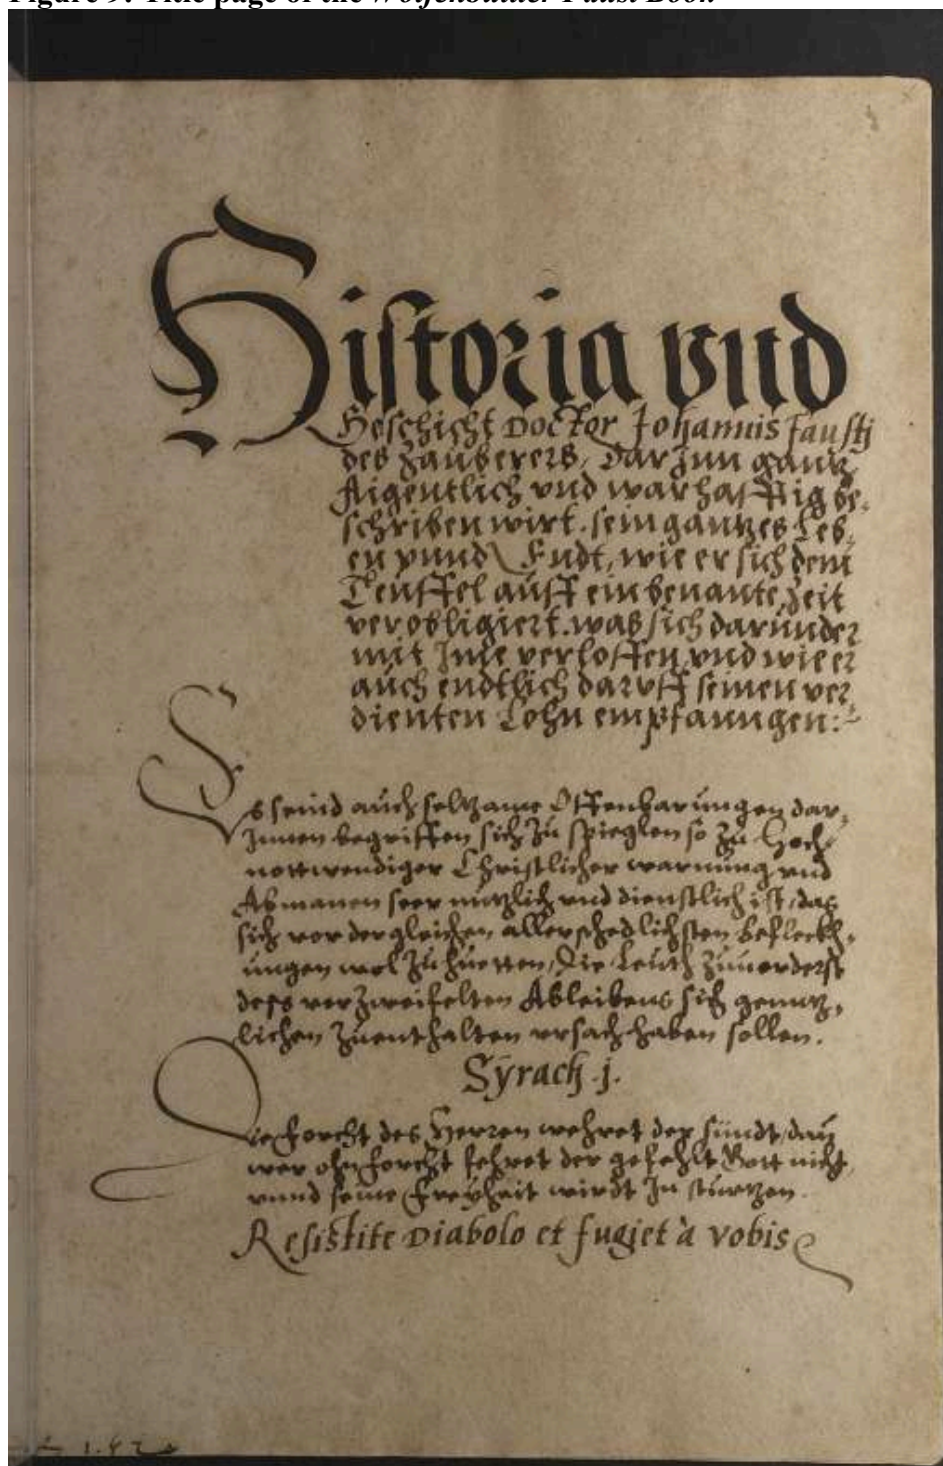 Figure 9: Title page of the Wolfenbüttel Faust Book
Historia vnd
Geschicht Doctor Johannis Faustj
des Zauberers, Darjnn gantz
Aigentlich vnd warhafftig be,
schriben wirt. sein gantzes Leb,
en vnnd Endt, wie er sich dem
Teuffel auff ein benante Zeit
verobligiert. was sich darunder
mit Jme verloffen vnd wie er
auch endtlich daruff seinen ver,
dienten Lohn empfanngen:
Es seind auch seltzame Offenbarungen dar,
Jnnen begriffen sich Zu spieglen so Zu Hoch
nottwendiger Christlicher warnung vnd
Abmanen seer nutzlich vnd dienstlich ist, das
sich vor dergleichen allerschedlichsten befleckh,
ungen wol Zu huetten, die Leuth Zuuorderst
dess verzweifelten Ableibens sich genntz,
lichen Zuenthalten vrsach haben sollen.
Syrach j.
Die Forcht des Herren wehret der sündt, dan
wer ohn forcht fehret der gefehlt Gott nicht,
vnnd seine Freyheit wirdt Jn sturtzen.
Resistite Diabolo et fugiet à vobis